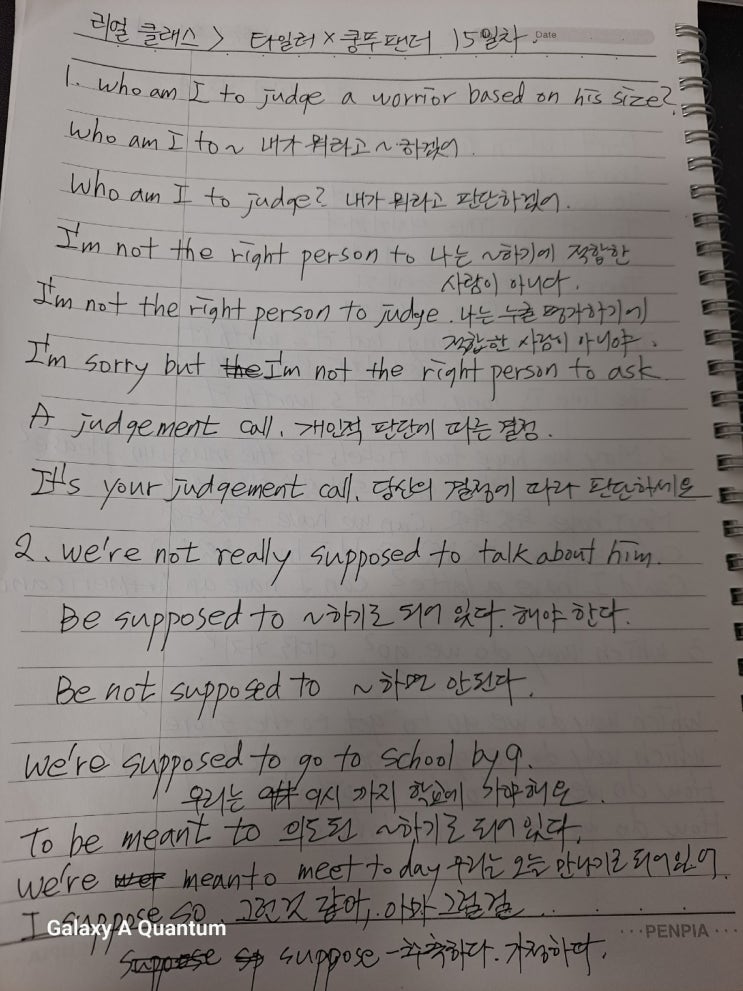 리얼 클래스 > 타일러 x 쿵푸팬더 15일차.
Date
1. Who am I to judge a worrior based on his size?
Who am I to ~ 내가 뭐라고 ~하겠어.
Who am I to judge? 내가 뭐라고 판단하겠어.
I'm not the right person to 나는 ~하기에 적합한
사람이 아니다.
I'm not the right person to judge. 나는 누굴 평가하기에
적합한 사람이 아니야.
I'm sorry but I'm not the right person to ask.
A judgement call. 개인적 판단에 따른 결정.
It's your judgement call. 당신의 결정에 따라 판단하세요
2. we're not really supposed to talk about him.
Be supposed to ~하기로 되어 있다. 해야 한다.
Be not supposed to ~하면 안된다.
we're supposed to go to school by 9.
우리는 9시 까지 학교에 가야해요.
To be meant to 의도된 ~하기로 되어 있다.
we're meanto meet today 우리는 오늘 만나기로 되어있어.
I suppose so. 그런것 같아, 아마 그럴걸
Galaxy A Quantum
PENPIA
suppose - 추측하다. 가정하다.